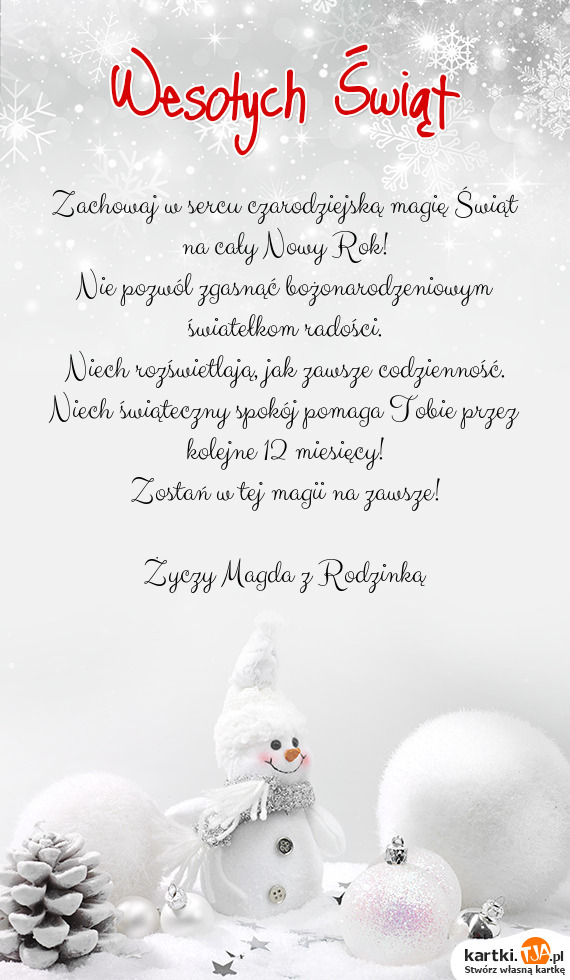 Wesołych Świąt
Zachowaj w sercu czarodziejską magię Świąt
na cały Nowy Rok!
Nie pozwól zgasnąć bożonarodzeniowym
światełkom radości.
Niech rozświetlają, jak zawsze codzienność.
Niech świąteczny spokój pomaga Tobie przez
kolejne 12 miesięcy!
Zostań w tej magii na zawsze!
Życzy Magda z Rodzinką
kartki.TJA.pl
Stwórz własną kartkę